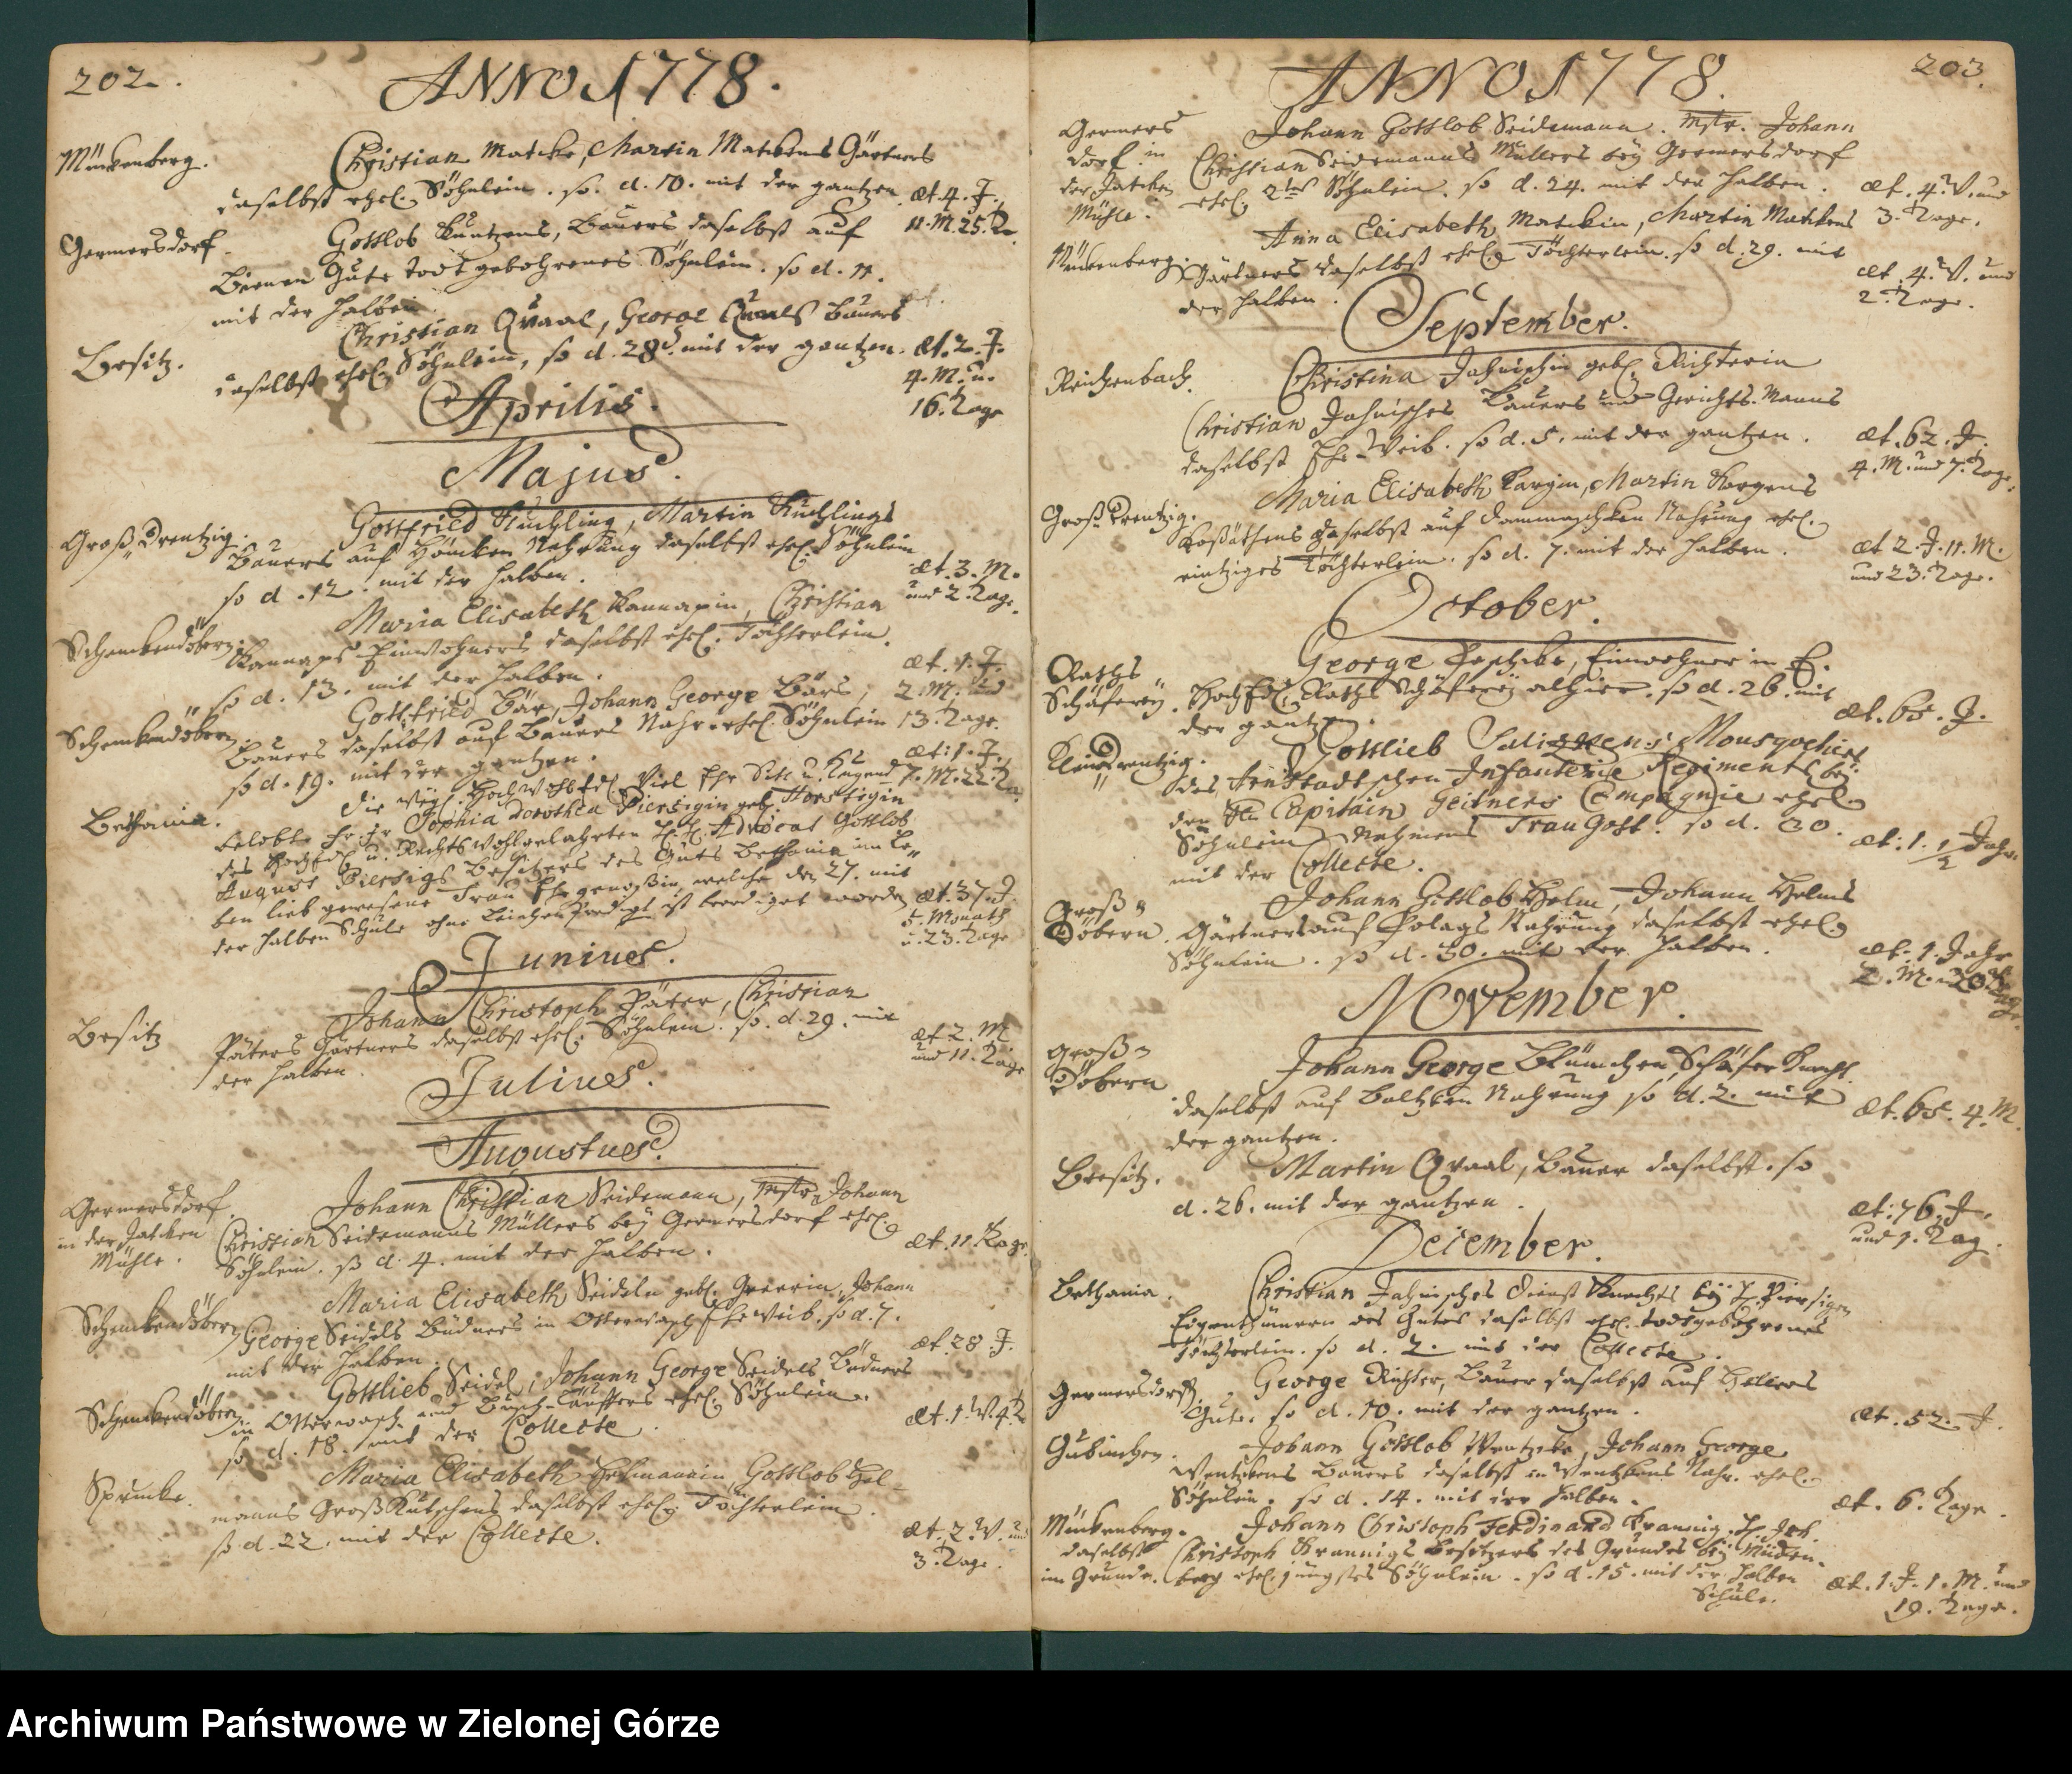 202.
ANNO 1778.
Mückenberg.
Christian Matcke, Martin Matckens Gärtners
daselbst ehel. Söhnlein. so. d. 10. mit der gantzen.
æt. 4. J.
11. M. 25. T.
Germersdorf.
Gottlob Kuntzens, Bauers daselbst auf
Gute todtgebohrenes Söhnlein. so d. 11.
mit der halben.
Besitz.
Christian Qvaal, George Qvaals Bauers
daselbst ehel. Söhnlein, so d. 28. mit der gantzen.
æt. 2. J.
4. M. u.
16. Tage
Aprilis.
Majus.
Groß Drentzig.
Gottfried Kuchling, Martin Kuchlings
Bauers auf Nahrung daselbst ehel. Söhnlein
so d. 12. mit der halben.
æt. 3. M.
und 2. Tage.
Schenckendöbern.
Maria Elisabeth Kannapin, Christian
Kannaps Einwohners daselbst ehel. Töchterlein.
so d. 13. mit der halben.
æt. 1. J.
2. M. und
13. Tage.
Schenckendöbern.
Gottfried Bär, Johann George Bärs,
Bauers daselbst auf Bauers Nahr. ehel. Söhnlein
so d. 19. mit der gantzen.
æt. 1. J.
7. M. 22. T.
Bethania.
Die HochwohlEdl. Viel Ehr Sitt u. Tugend
belobte Fr. Fr. Sophia Dorothea Piersigin geb.
des HochEdl. u. Rechts Wohlgelahrten H. H. Advocat Gottlob
August Piersigs Besitzers des Guts Bethania im Le-
ben lieb gewesene Frau Ehegenoßin, welche den 27. mit
der halben Schule ohne Leichenpredigt ist beerdiget worden
æt. 37. J.
5. Monath
u. 23. Tage
Junius.
Besitz
Johann Christoph Päter, Christian
Päters Gärtners daselbst ehel. Söhnlein. so. d. 29. mit
der halben.
æt 2. M.
und 11. Tage
Julius.
Augustus.
Germersdorf
in der Jatcken
Mühle.
Johann Christian Seidemann, Mstr. Johann
Christian Seidemanns Müllers bey Germersdorf ehel.
Söhnlein. so d. 4. mit der halben.
æt. 11. Tage.
Schenckendöbern
Maria Elisabeth Seideln geb. Johann
George Seidels Büdners in Osterwasch Eheweib. so d. 7.
mit der halben.
æt. 28. J.
Schenckendöbern
Gottlieb Seidel, Johann George Seidels Büdners
in Osterwasch und Busch-Läuffers ehel. Söhnlein.
so d. 18. mit der Collecte.
æt. 1. W. 4. T.
Sprucke.
Maria Elisabeth Heilmannin, Gottlob Heil-
manns Groß Kutschens daselbst ehel. Töchterlein.
so d. 22. mit der Collecte.
æt. 2. W. und
3. Tage.
203.
ANNO 1778.
Germers
dorf in
der Jatcken
Mühle.
Johann Gottlob Seidemann. Mstr. Johann
Christian Seidemanns Müllers bey Germersdorf
ehel. 2tes Söhnlein. so d. 24. mit der halben.
æt. 4. W. und
3. Tage.
Mückenberg.
Anna Elisabeth Matckin, Martin Matckens
Gärtners daselbst ehel. Töchterlein. so d. 29. mit
der halben.
æt. 4. W. und
2. Tage.
September.
Reichenbach.
Christina Jahnischin geb. Richterin
Christian Jahnisches Bauers und Gerichts-Manns
daselbst Ehe-Weib. so d. 5. mit der gantzen.
æt. 62. J.
4. M. und 7. Tage.
Groß Drentzig.
Maria Elisabeth Kargin, Martin Kargens
Koßäthens daselbst auf Nahrung ehel.
eintziges Töchterlein. so d. 7. mit der halben.
æt 2. J. 11. M.
und 23. Tage.
October.
Raths
Schäferey.
George Einwohner in E.
HochEdl. Raths Schäferey alhier. so d. 26. mit
der gantzen.
æt. 65. J.
Klein Drentzig.
Gottlieb Mousquetiers
des Infanterie Regiments bey
den Hn. Capitain Geitners Compagnie ehel.
Söhnlein Nahmens Traugott. so d. 30.
mit der Collecte.
æt: 1. 1/2 Jahr.
Groß
Döbern.
Johann Gottlob Helm, Johann Helms
Gärtners auf Polags Nahrung daselbst ehel.
Söhnlein. so d. 30. mit der halben.
æt. 1. Jahr
2. M. 20. Tage.
November.
Groß
Döbern
Johann George Blümchen Schäfer Knecht
daselbst auf Nahrung so d. 2. mit
der gantzen.
æt. 65. 4. M.
Besitz.
Martin Qvaal, Bauer daselbst. so
d. 26. mit der gantzen.
æt: 76. J.
und 1. Tag.
December.
Bethania.
Christian Jahnisches Dienst Knechts bey H. Piersigen
Eigenthümern des Gutes daselbst ehel. todtgebohrenes
Töchterlein. so d. 2. mit der Collecte.
Germersdorff.
George Richter, Bauer daselbst auf Hellers
Gute. so d. 10. mit der gantzen.
æt. 52. J.
Gubinchen.
Johann Gottlob Wentzke, Johann George
Wentzkens Bauers daselbst in Wentzkens Nahr. ehel.
Söhnlein. so d. 14. mit der halben.
æt. 6. Tage.
Mückenberg.
daselbst
im Grunde.
Johann Christoph Ferdinand Krannig, H. Joh.
Christoph Krannigs Besitzers des Grundes bey Mücken-
berg ehel. jüngstes Söhnlein. so d. 15. mit der halben
Schule.
æt. 1. J. 1. M. und
19. Tage.
Archiwum Państwowe w Zielonej Górze